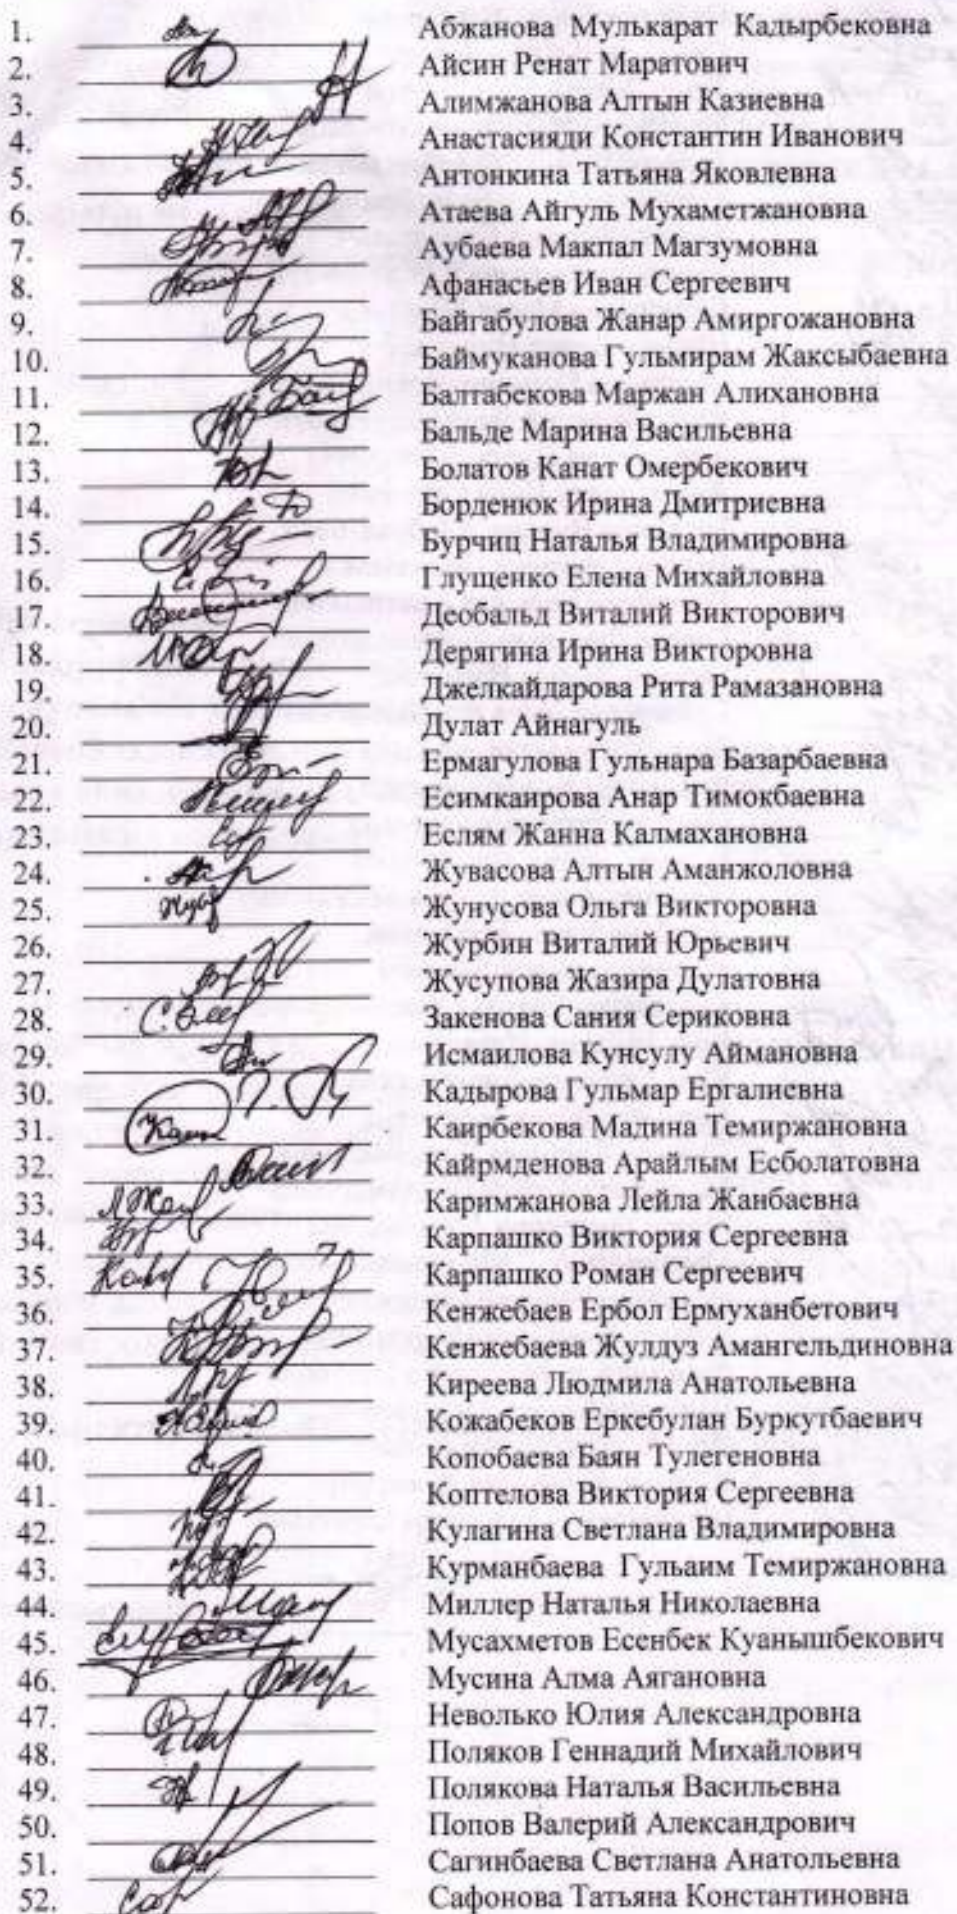 1. Абжанова Мулькарат Кадырбековна
2. Айсин Ренат Маратович
3. Алимжанова Алтын Казиевна
4. Анастасияди Константин Иванович
5. Антонкина Татьяна Яковлевна
6. Атаева Айгуль Мухаметжановна
7. Аубаева Макпал Магзумовна
8. Афанасьев Иван Сергеевич
9. Байгабулова Жанар Амиргожановна
10. Баймуканова Гульмирам Жаксыбаевна
11. Балтабекова Маржан Алихановна
12. Бальде Марина Васильевна
13. Болатов Канат Омербекович
14. Борденюк Ирина Дмитриевна
15. Бурчиц Наталья Владимировна
16. Глущенко Елена Михайловна
17. Деобальд Виталий Викторович
18. Дерягина Ирина Викторовна
19. Джелкайдарова Рита Рамазановна
20. Дулат Айнагуль
21. Ермагулова Гульнара Базарбаевна
22. Есимкаирова Анар Тимокбаевна
23. Еслям Жанна Калмахановна
24. Жувасова Алтын Аманжоловна
25. Жунусова Ольга Викторовна
26. Журбин Виталий Юрьевич
27. Жусупова Жазира Дулатовна
28. Закенова Сания Сериковна
29. Исмаилова Кунсулу Аймановна
30. Кадырова Гульмар Ергалиевна
31. Каирбекова Мадина Темиржановна
32. Кайрмденова Арайлым Есболатовна
33. Каримжанова Лейла Жанбаевна
34. Карпашко Виктория Сергеевна
35. Карпашко Роман Сергеевич
36. Кенжебаев Ербол Ермуханбетович
37. Кенжебаева Жулдуз Амангельдиновна
38. Киреева Людмила Анатольевна
39. Кожабеков Еркебулан Буркутбаевич
40. Копобаева Баян Тулегеновна
41. Коптелова Виктория Сергеевна
42. Кулагина Светлана Владимировна
43. Курманбаева Гульаим Темиржановна
44. Миллер Наталья Николаевна
45. Мусахметов Есенбек Куанышбекович
46. Мусина Алма Аягановна
47. Неволько Юлия Александровна
48. Поляков Геннадий Михайлович
49. Полякова Наталья Васильевна
50. Попов Валерий Александрович
51. Сагинбаева Светлана Анатольевна
52. Сафонова Татьяна Константиновна